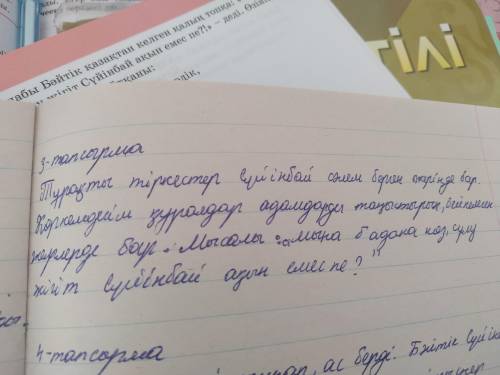 дабы Бәйтік қазақтан келген қалың топқа:
жігіт Сүйінбай ақын емес пе?!» – деді.
ТІЛІ
3-тапсырма
Тұрақты тіркестер Сүйінбай сәлем берген өлеңінде бар.
Көркемдегіш құралдар адамдарды таныстырып,
жерлерде бар. Мысалы: „мына бадана көз, сұлу
жігіт Сүйінбай ақын емес пе?"
4-тапсырма
ас берді. Бәйтік